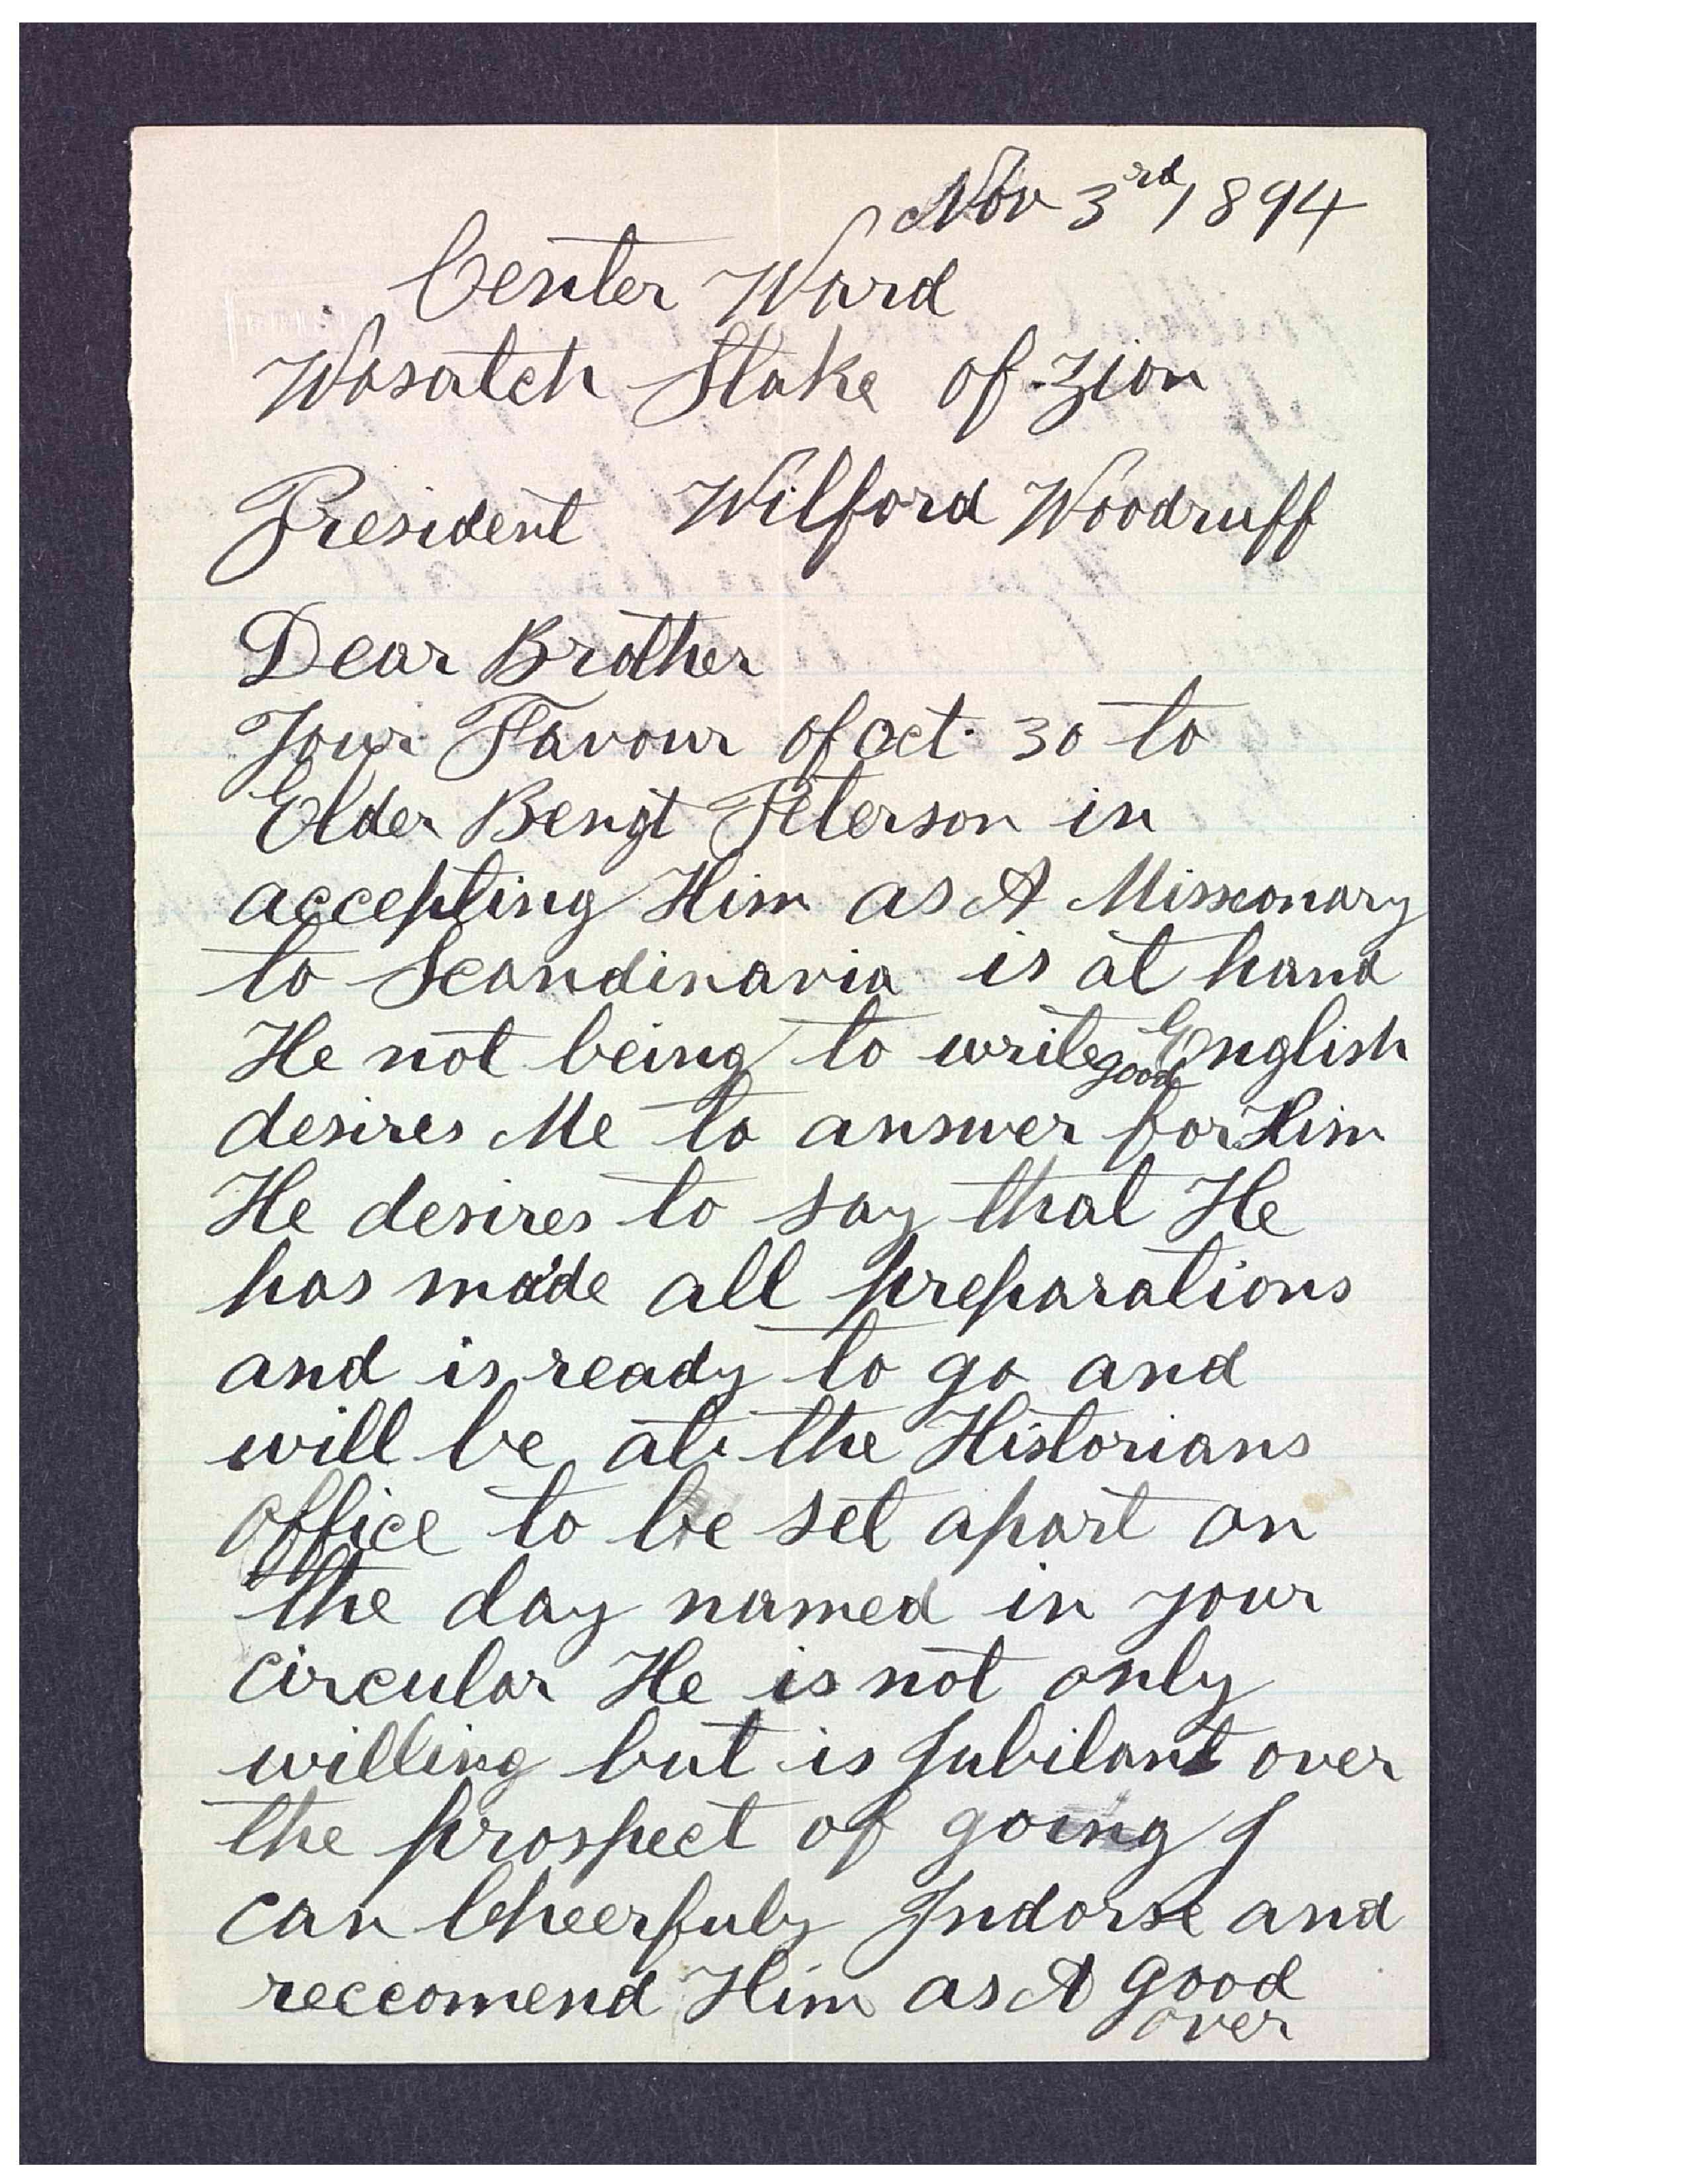 Nov 3rd, 1894
Center Ward
Wasatch Stake of Zion
President Wilford Woodruff
Dear Brother
Your Favour of oct. 30 to
Elder Bengt Peterson in
accepting Him as A Missionary
to Scandinavia is at hand
He not being to write good English
desires Me to answer for Him
He desires to say that He
has made all preparations
and is ready to go and
will be at the Historians
office to be set apart on
the day named in your
circular He is not only
willing but is Jubilant over
the prospect of going I
can Cheerfuly Indorse and
reccomend Him as A good
over